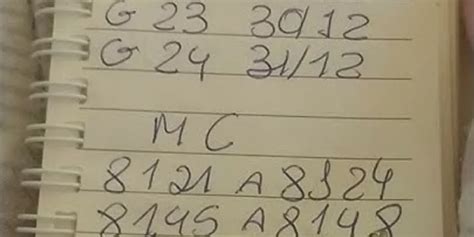 G 23 30/12
G 24 31/12
MC
8121 A 8124
8145 A 8148